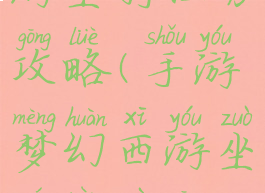 gōng lüè shǒu yóu
攻略(手游
mèng huàn xī yóu zuò
梦幻西游坐